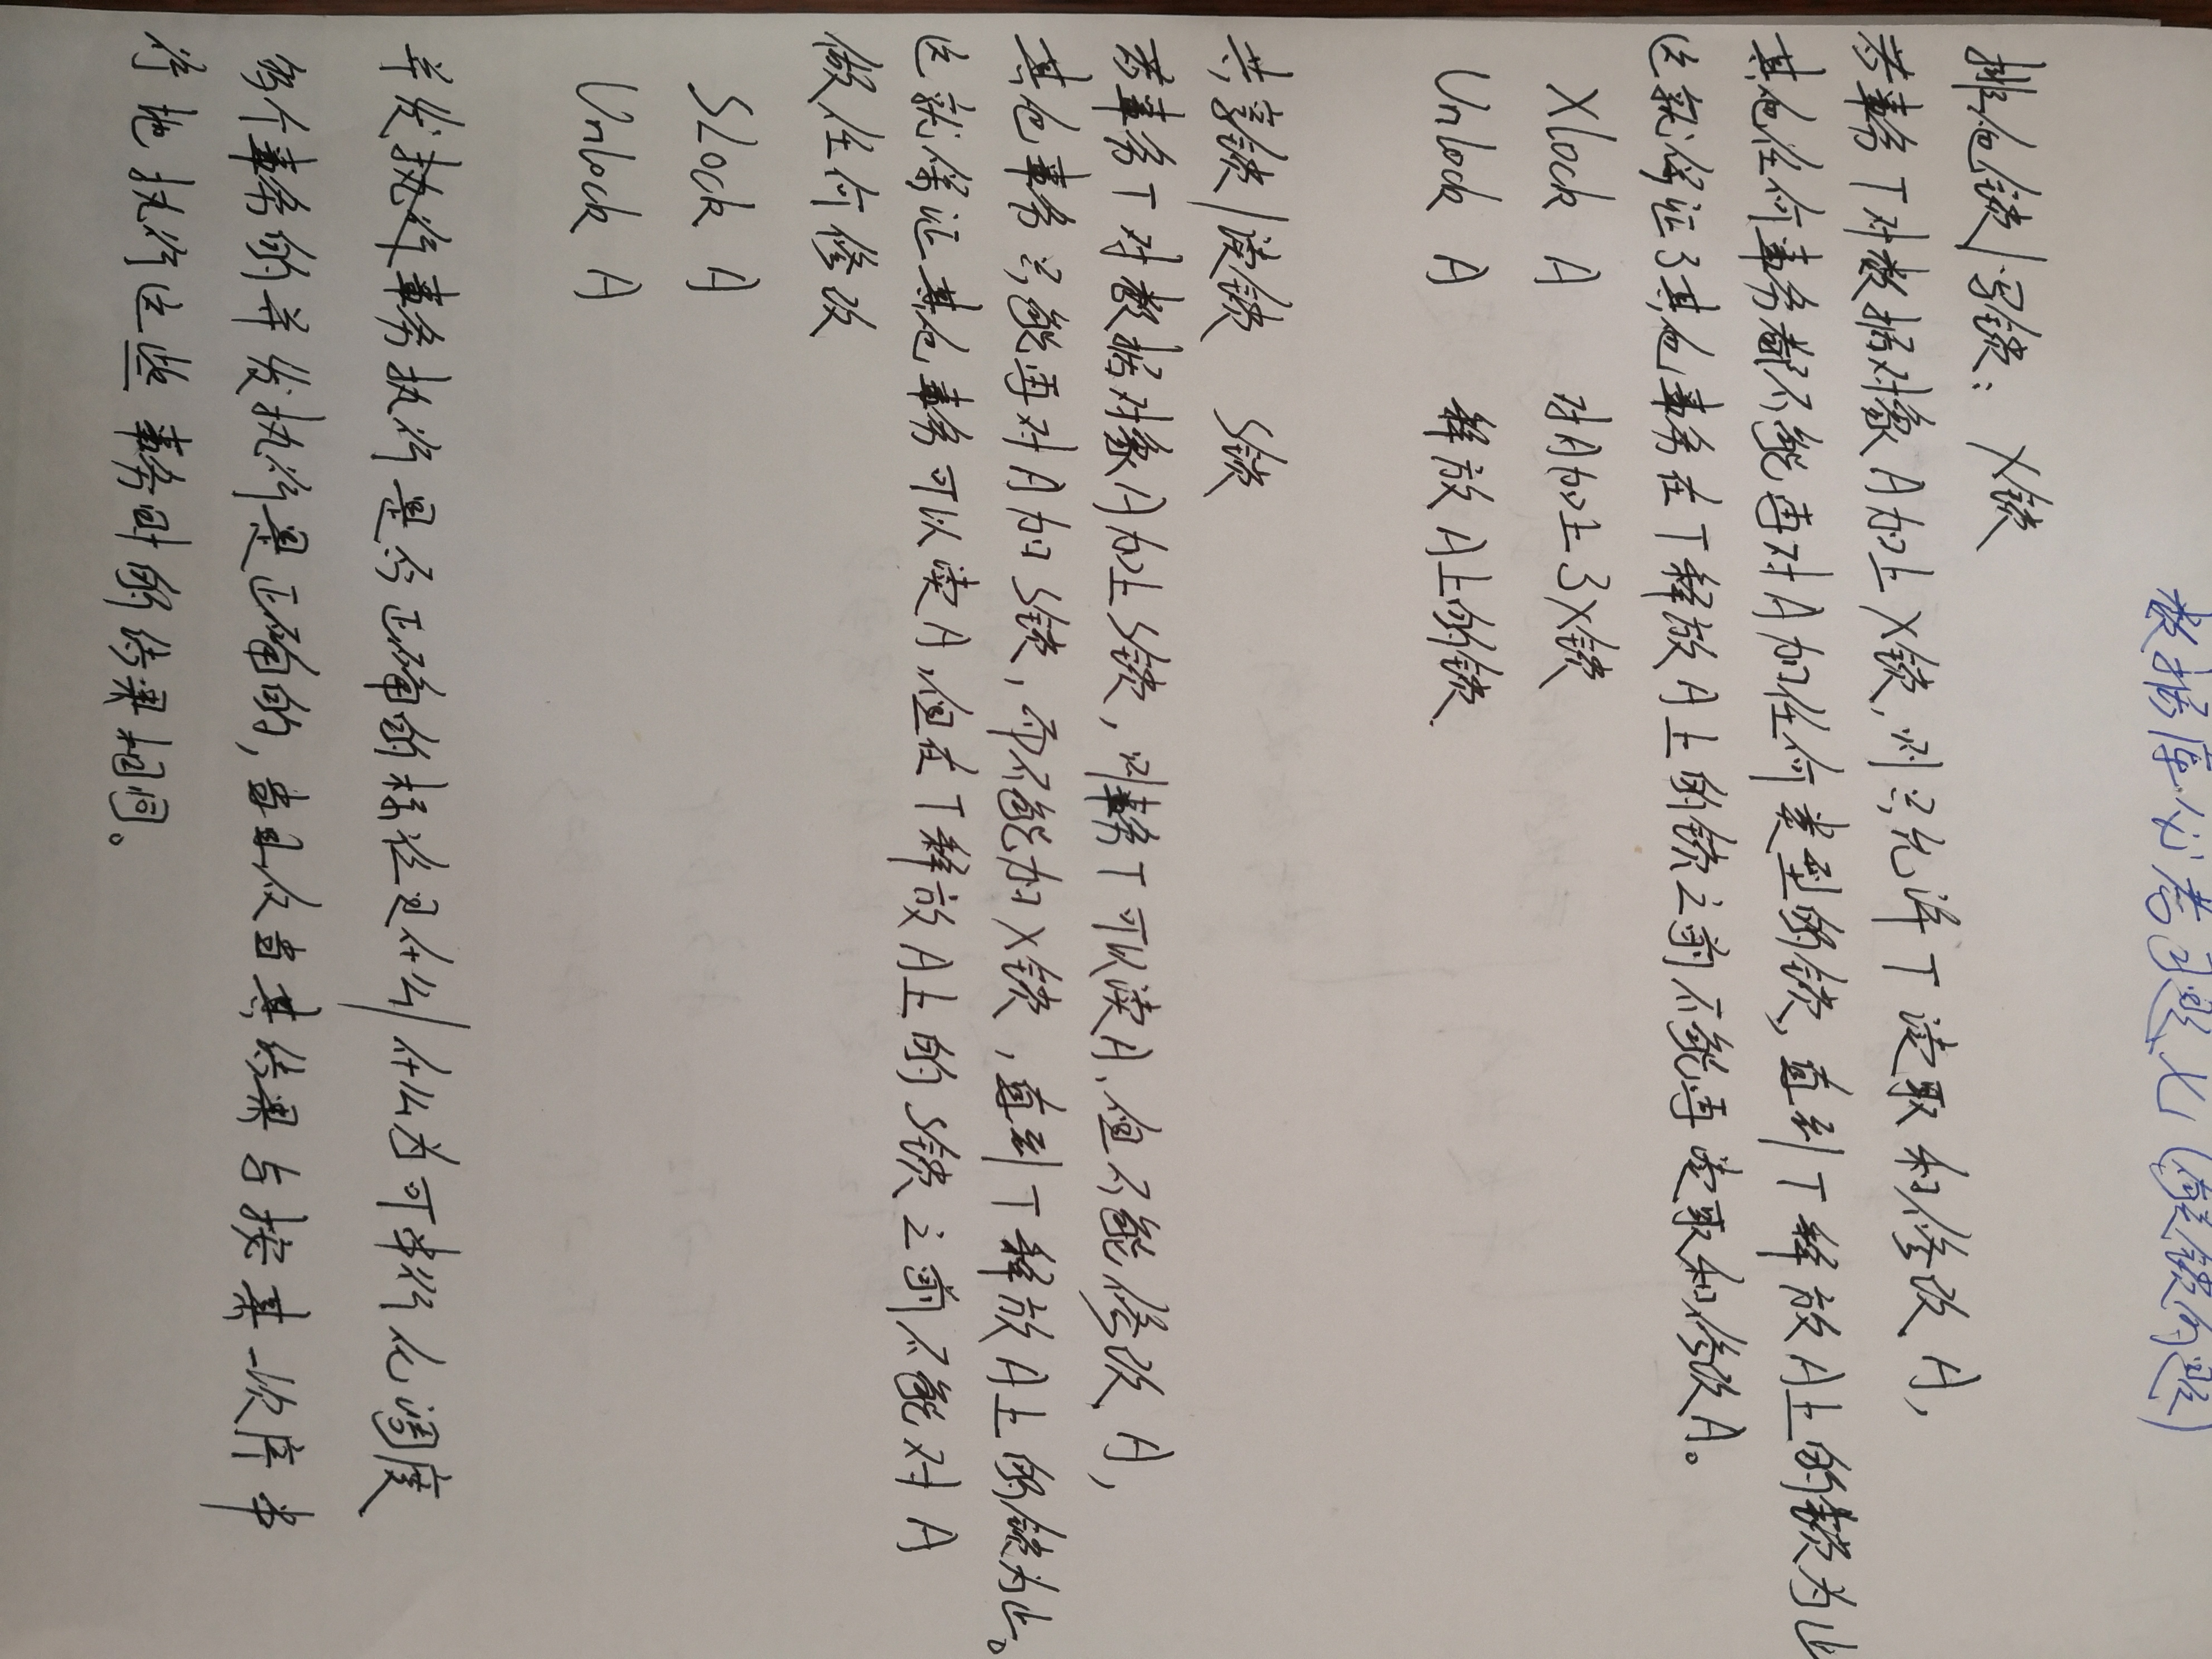 数据库必考问题七(简答锁问题)
排他锁/写锁： X锁
若事务T对数据对象A加上X锁,则只允许T读取和修改A,
其他任何事务都不能再对A加任何类型的锁,直到T释放A上的锁为止
这就保证了其他事务在T释放A上的锁之前不能再读取和修改A。
Xlock A 对A加上了X锁
Unlock A 释放A上的锁.
共享锁/读锁 S锁
若事务T对数据对象A加上S锁,则事务T可以读A,但不能修改A,
其他事务只能再对A加S锁,而不能加X锁,直到T释放A上的锁为止。
这就保证其他事务可以读A,但在T释放A上的S锁之前不能对A
做任何修改
SLock A
Unlock A
并发执行事务执行是否正确的标准是什么/什么为可串行化调度
多个事务的并发执行是正确的,当且仅当其结果与按某一次序串
行地执行这些事务时的结果相同。